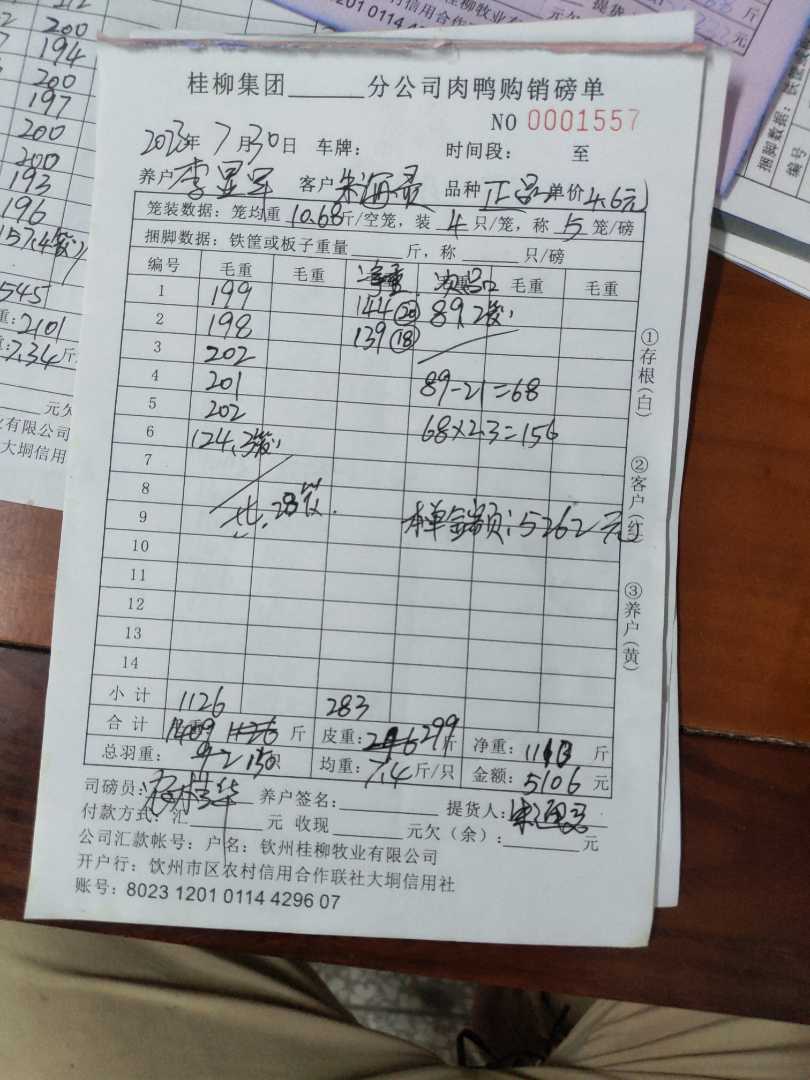 桂柳集团______分公司肉鸭购销磅单
NO 0001557
2023年 7月30日 车牌: 时间段: 至
养户 李显军 客户 朱海灵 品种 正品 单价 4.6元
笼装数据: 笼均重 10.68斤/空笼, 装 4 只/笼, 称 5 笼/磅
捆脚数据: 铁筐或板子重量______斤, 称______只/磅
编号 毛重 毛重 净重 次品 毛重 毛重
1 199 144(20) 89.2笼
2 198 139(18)
3 202
4 201 89-21=68
5 202 68×2.3=156
6 124.3笼
7
8
9 共.28笼. 本单金额:5262元
10
11
12
13
14
小计 1126 283
合计 1409 斤 皮重: 299斤 净重: 1110斤
总羽重: 150只 均重: 7.4斤/只 金额: 5106元
司磅员: 养户签名: 提货人:
付款方式: 汇______元 收现______元欠(余):______元
公司汇款帐号: 户名: 钦州桂柳牧业有限公司
开户行: 钦州市区农村信用合作联社大垌信用社
账号: 8023 1201 0114 4296 07
①存根(白)
②客户(红)
③养户(黄)
200
194
200
197
200
200
193
196
157.4笼
545
重: 2101
7.34斤
元欠
业有限公司
大垌信用
村信用合作
桂柳牧业有
1201 0114 4
提货
斤
元
元欠
捆脚数据:
编号